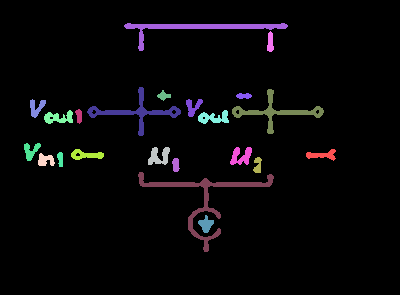 Vout1 + Vout -
Vin1 M1 M2